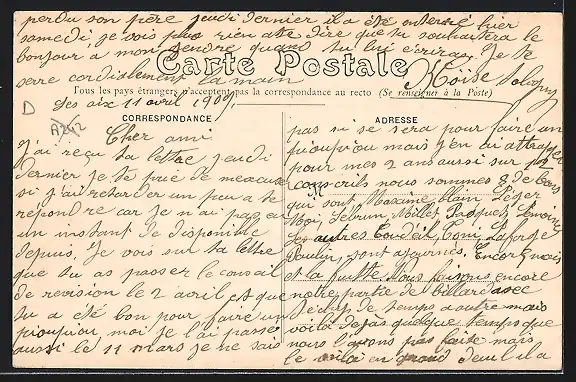 perdu son père jeudi dernier il a été enterré hier
samedi je vois plus rien a te dire que tu souhaitera le
bonjour a mon gendre quand tu lui écriras. Je te
serre cordialement la main
Carte Postale
Moïse
Tous les pays étrangers n'acceptent pas la correspondance au recto (Se renseigner à la Poste)
D
A242
Les aix 11 avril 1909
CORRESPONDANCE
Cher ami
J'ai reçu ta lettre jeudi
dernier je te prie de m'excuse
si j'ai retarder un peu a te
répondre car je n'ai pas eu
un instant de disponible
depuis. Je vois sur ta lettre
que tu as passer le conseil
de revision le 2 avril et que
tu a été bon pour faire un
pioupiou, moi je l'ai passé
aussi le 11 mars je ne sais
ADRESSE
pas si se sera pour faire un
pioupiou mais j'en ai attraper
pour mes 2 ans aussi sur
conscrits nous sommes 8 de bons
qui sont Maxime, Blain, Léger
Moi, Lebrun, Millet Pasquet,
les autres Coudeil, Coni, Laforge
Paulin, sont ajournés. Encore
et la Nous faisons encore
notre partie de billard avec
de temps a autre mais
voilà déjas quelque temps que
nous l'avons pas faite mais
le voila en grand deuil il a